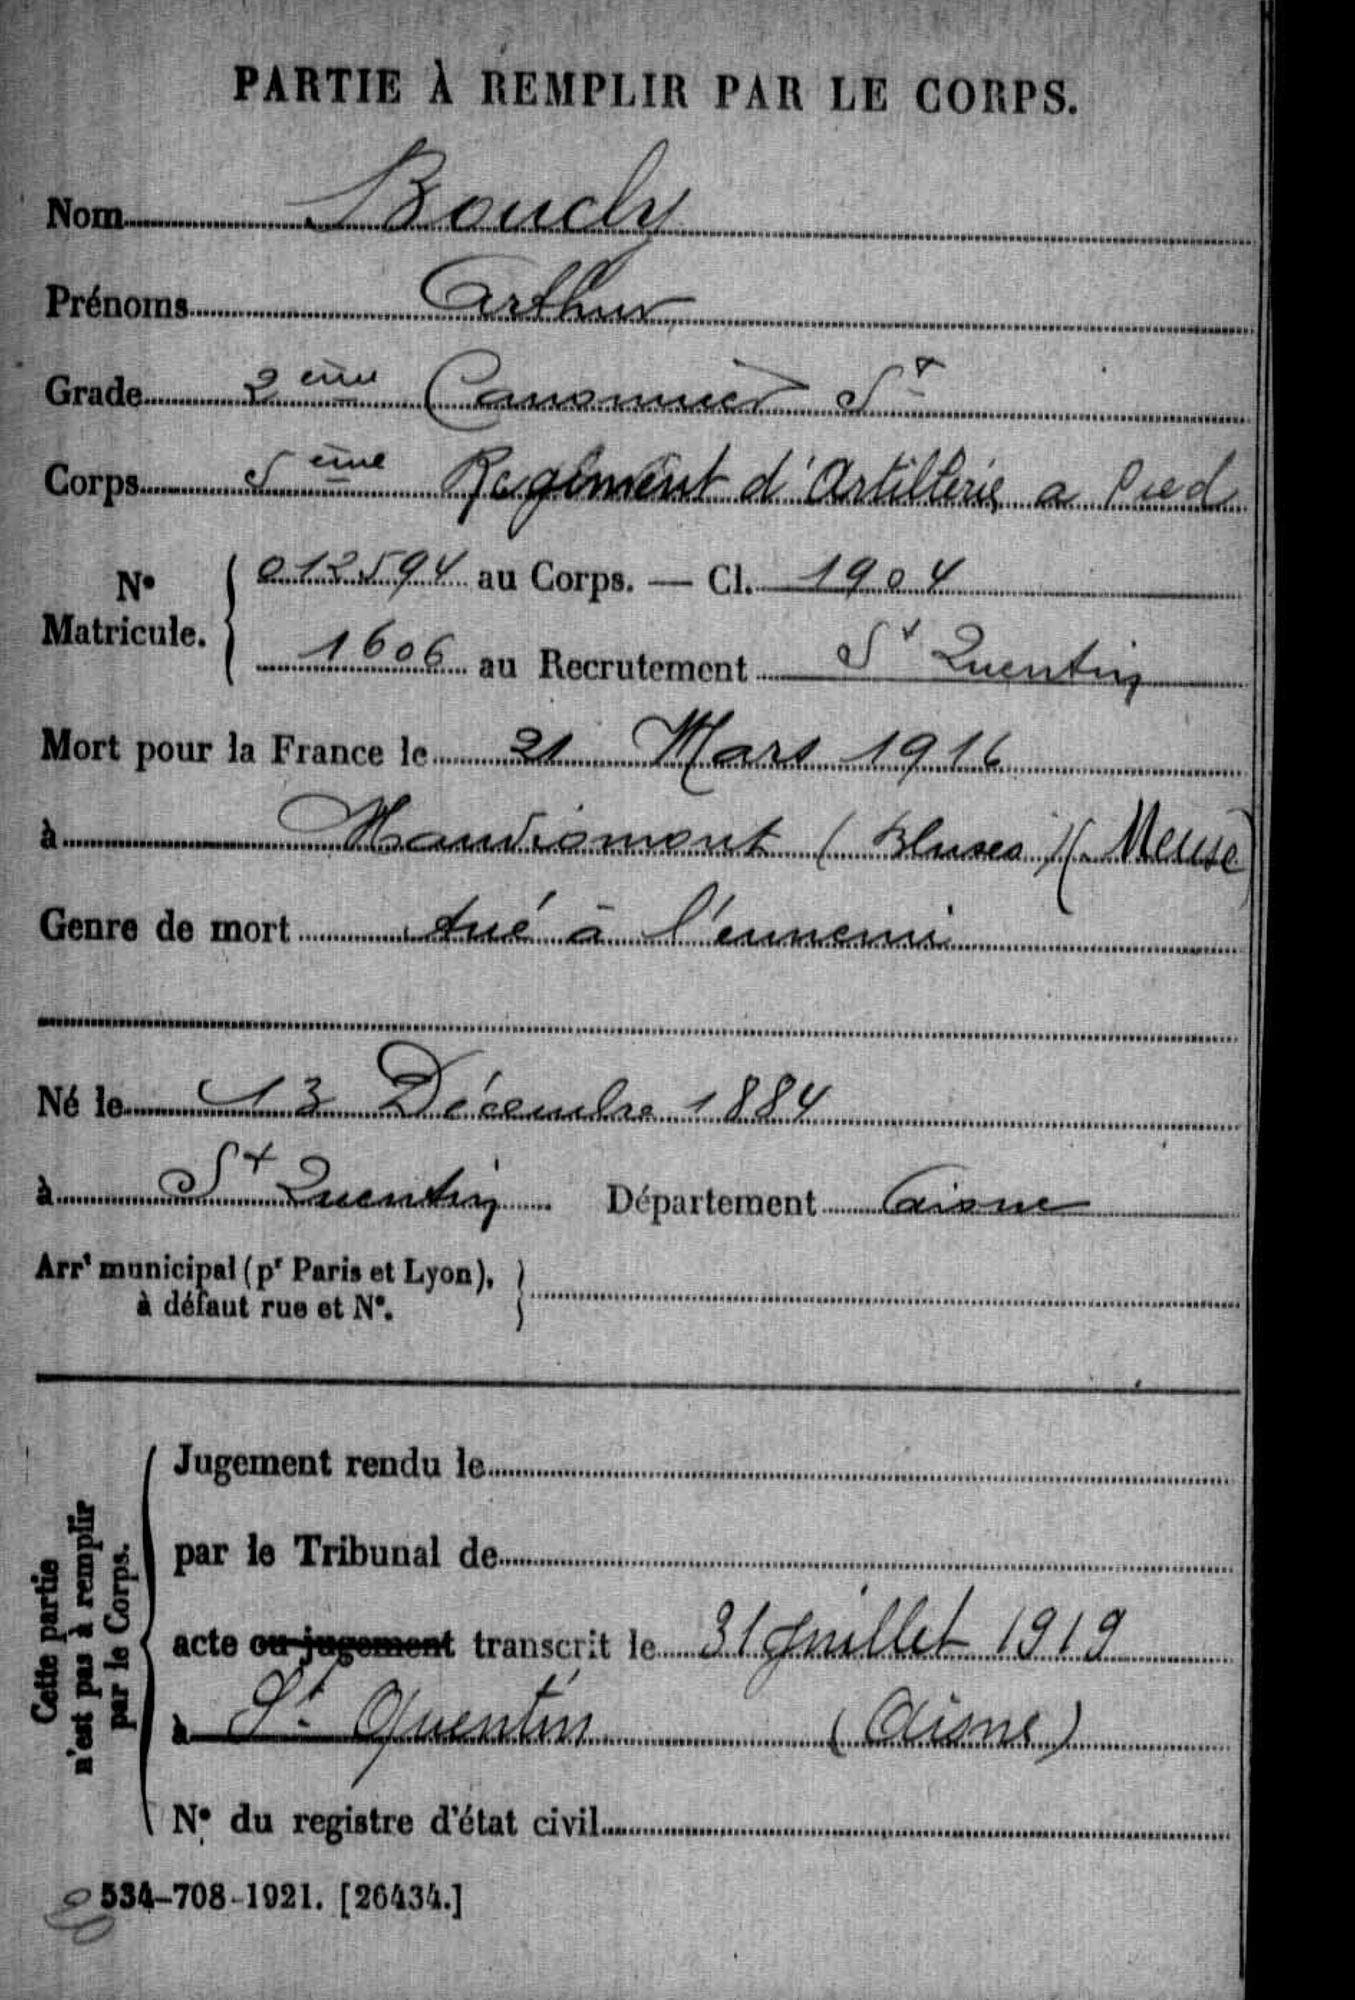 PARTIE À REMPLIR PAR LE CORPS.
Nom Bouchy
Prénoms Arthur
Grade 2ème Canonnier St
Corps 5ème Régiment d'Artillerie a Pied
N° Matricule. 012594 au Corps. — Cl. 1904
1606 au Recrutement St Quentin
Mort pour la France le 21 Mars 1916
à Haudiomont (Meuse)
Genre de mort tué à l'ennemi
Né le 13 Décembre 1884
à St Quentin Département Aisne
Arrt municipal (pr Paris et Lyon),
à défaut rue et N°.
Cette partie
n'est pas à remplir
par le Corps.
Jugement rendu le
par le Tribunal de
acte ou jugement transcrit le 31 Juillet 1919
à St Quentin (Aisne)
N° du registre d'état civil
534-708-1921. [26434.]